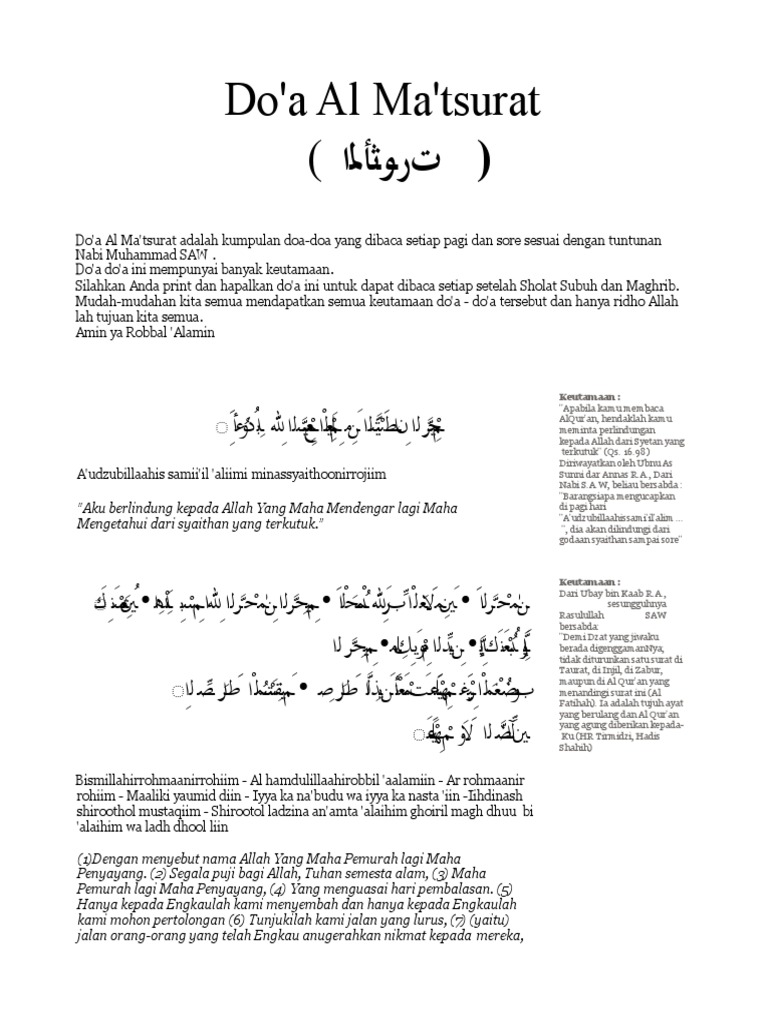 Do'a Al Ma'tsurat
Do'a Al Ma'tsurat adalah kumpulan doa-doa yang dibaca setiap pagi dan sore sesuai dengan tuntunan
Nabi Muhammad SAW .
Do'a do'a ini mempunyai banyak keutamaan.
Silahkan Anda print dan hapalkan do'a ini untuk dapat dibaca setiap setelah Sholat Subuh dan Maghrib.
Mudah-mudahan kita semua mendapatkan semua keutamaan do'a - do'a tersebut dan hanya ridho Allah
lah tujuan kita semua.
Amin ya Robbal 'Alamin
A'udzubillaahis samii'il 'aliimi minassyaithoonirrojiim
"Aku berlindung kepada Allah Yang Maha Mendengar lagi Maha
Mengetahui dari syaithan yang terkutuk."
Keutamaan :
"Apabila kamu membaca
AlQur'an, hendaklah kamu
meminta perlindungan
kepada Allah dari Syetan yang
terkutuk" (Qs. 16.98)
Diriwayatkan oleh Ubnu As
Sunni dar Annas R.A , Dari
Nabi S.A.W, beliau bersabda :
"Barangsiapa mengucapkan
di pagi hari
"A'udzubillaahissami'il'alim ...
", dia akan dilindungi dari
godaan syaithan sampai sore"
Bismillahirrohmaanirrohiim - Al hamdulillaahirobbil 'aalamiin - Ar rohmaanir
rohiim - Maaliki yaumid diin - Iyya ka na'budu wa iyya ka nasta 'iin -Iihdinash
shiroothol mustaqiim - Shirootol ladzina an'amta 'alaihim ghoiril magh dhuu bi
'alaihim wa ladh dhool liin
(1)Dengan menyebut nama Allah Yang Maha Pemurah lagi Maha
Penyayang. (2) Segala puji bagi Allah, Tuhan semesta alam, (3) Maha
Pemurah lagi Maha Penyayang, (4) Yang menguasai hari pembalasan. (5)
Hanya kepada Engkaulah kami menyembah dan hanya kepada Engkaulah
kami mohon pertolongan (6) Tunjukilah kami jalan yang lurus, (7) (yaitu)
jalan orang-orang yang telah Engkau anugerahkan nikmat kepada mereka,
Keutamaan :
Dari Ubay bin Kaab R.A ,
sesungguhnya
Rasulullah SAW
bersabda:
"Demi Dzat yang jiwaku
berada digenggamanNya,
tidak diturunkan satu surat di
Taurat, di Injil, di Zabur,
maupun di Al Qur'an yang
menandingi surat ini (Al
Fatihah). Ia adalah tujuh ayat
yang berulang dan Al Qur'an
yang agung diberikan kepada-
Ku (HR Tirmidzi, Hadis
Shahih)